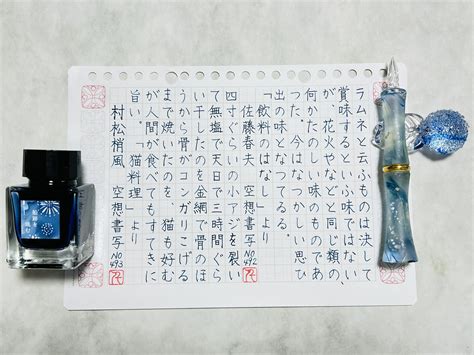 ラムネと云ふものは決して
賞味するといふ味ではない
が、花火やなどと同じ類の、
何かたのしい味のものであ
った。今はなつかしい思ひ
出の味となつてゐる。
「飲料のはなし」より
佐藤春夫 空想書写 NO492
四寸ぐらいの小アジを裂い
て無塩で天日で三時間ぐら
い干したのを金網で骨のほ
うから骨がコンガリこげる
まで焼いたのを、猫も好む
が人間が食べてもすてきに
旨い。「猫料理」より
村松梢風 空想書写 NO493